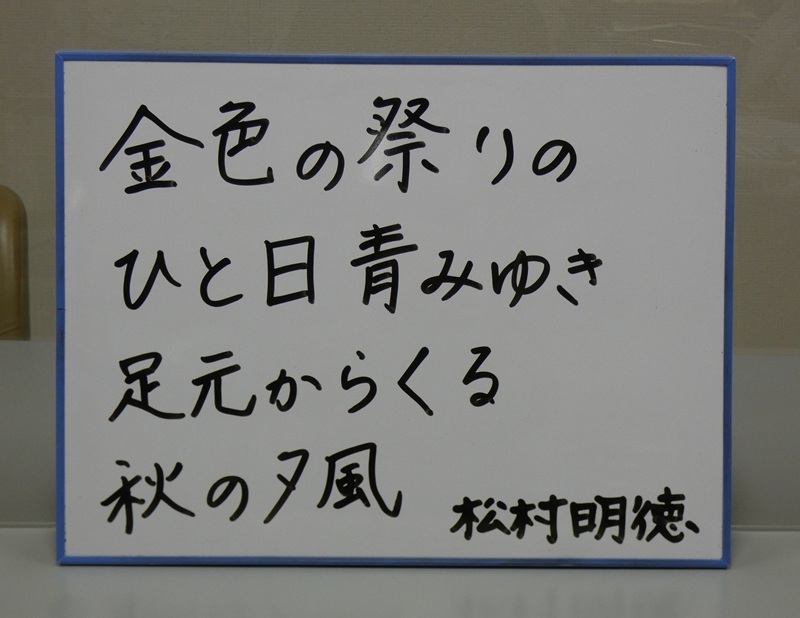 金色の祭りの
ひと日青みゆき
足元からくる
秋の夕風
松村明徳